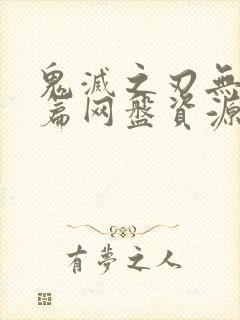 鬼滅之刃無
篇网盤資源
有夢之人